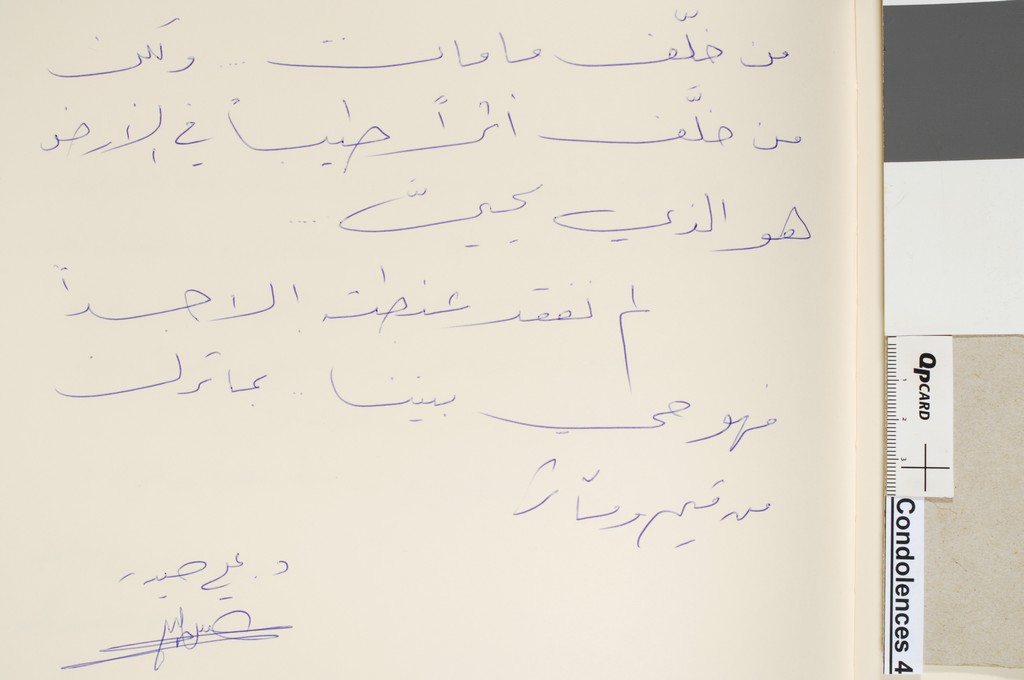 من خلّف ما مات .... ولكن
من خلَّف أثراً طيباً في الأرض
هو الذي يحيى ....
لم نفقد شنطت إلا جسداً
فهو حي بيننا .. بما ترك
من قيم ومآثر
د. علي حيدر
QPCARD
1
2
3
Condolences 4